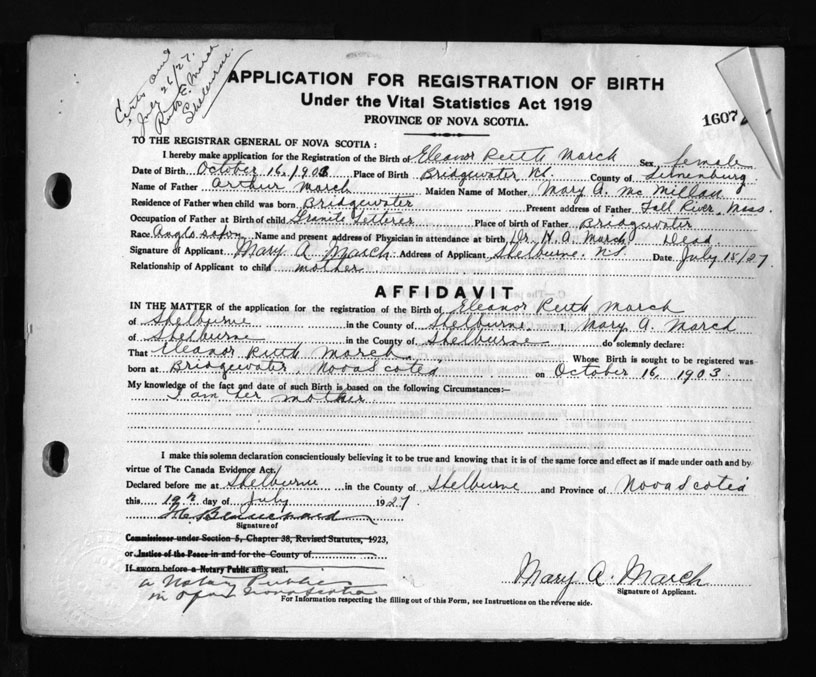 July 26/27.
Ruth E. March
Shelburne.
APPLICATION FOR REGISTRATION OF BIRTH
Under the Vital Statistics Act 1919
PROVINCE OF NOVA SCOTIA.
1607
TO THE REGISTRAR GENERAL OF NOVA SCOTIA :
I hereby make application for the Registration of the Birth of Eleanor Ruth March Sex female
Date of Birth October 16, 1903 Place of Birth Bridgewater N.S. County of Lunenburg
Name of Father Arthur March Maiden Name of Mother Mary A. McMillan
Residence of Father when child was born Bridgewater Present address of Father Fall River, Mass.
Occupation of Father at Birth of child Granite Letterer Place of birth of Father Bridgewater
Race Anglo saxon Name and present address of Physician in attendance at birth Dr. H. A. March Dead
Signature of Applicant Mary A March Address of Applicant Shelburne. N.S. Date July 18/27
Relationship of Applicant to child mother
AFFIDAVIT
IN THE MATTER of the application for the registration of the Birth of Eleanor Ruth March
of Shelburne in the County of Shelburne. I Mary A. March
of Shelburne in the County of Shelburne do solemnly declare:
That Eleanor Ruth March Whose Birth is sought to be registered was
born at Bridgewater, Nova Scotia on October 16, 1903.
My knowledge of the fact and date of such Birth is based on the following Circumstances:-
I am her mother
I make this solemn declaration conscientiously believing it to be true and knowing that it is of the same force and effect as if made under oath and by
virtue of The Canada Evidence Act.
Declared before me at Shelburne in the County of Shelburne and Province of Nova Scotia
this 19th day of July 1927
Signature of
Commissioner under Section 5, Chapter 38, Revised Statutes, 1923,
or Justice of the Peace in and for the County of
If sworn before a Notary Public affix seal.
a Notary Public
in Nova Scotia
Mary A. March
Signature of Applicant.
For Information respecting the filling out of this Form, see Instructions on the reverse side.